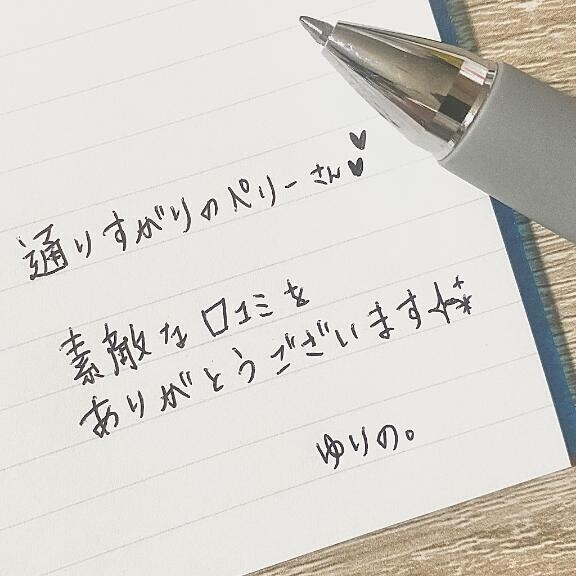 通りすがりのペリーさん♥♥
素敵な口コミを
ありがとうございます
ゆりの。